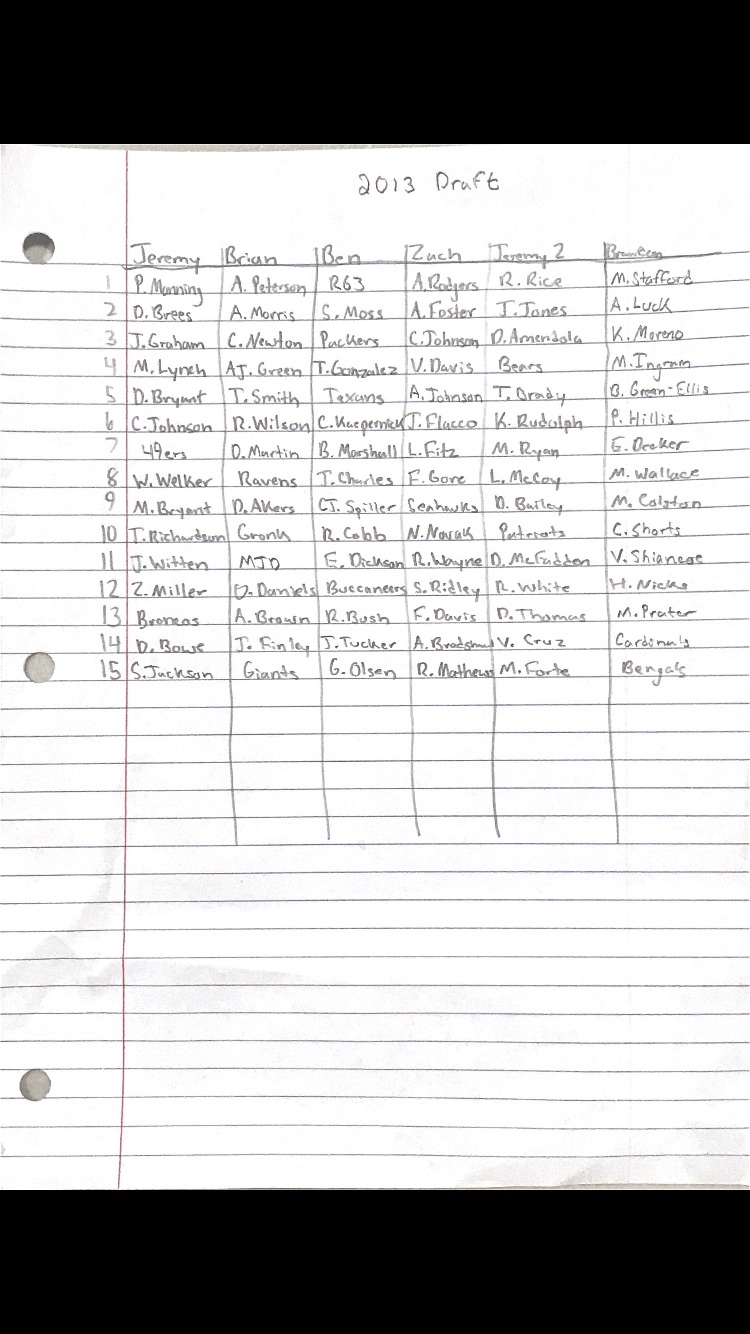 2013 Draft
Jeremy Brian Ben Zach Jeremy 2
1 P. Manning A. Peterson RG3 A. Rodgers R. Rice M. Stafford
2 D. Brees A. Morris S. Moss A. Foster J. Jones A. Luck
3 J. Graham C. Newton Packers C. Johnson D. Amendola K. Moreno
4 M. Lynch AJ. Green T. Gonzalez V. Davis Bears M. Ingram
5 D. Bryant T. Smith Texans A. Johnson T. Brady B. Green-Ellis
6 C. Johnson R. Wilson C. Kaepernick J. Flacco K. Rudolph P. Hillis
7 49ers D. Martin B. Marshall L. Fitz M. Ryan E. Decker
8 W. Welker Ravens J. Charles F. Gore L. McCoy M. Wallace
9 M. Bryant D. Akers CJ. Spiller Seahawks D. Bailey M. Colston
10 T. Richardson Gronk R. Cobb N. Novak Patriots C. Shorts
11 J. Witten MJD E. Dickson R. Wayne D. McFadden V. Shiancoe
12 Z. Miller O. Daniels Buccaneers S. Ridley R. White H. Nicks
13 Broncos A. Brown R. Bush F. Davis D. Thomas M. Prater
14 D. Bowe J. Finley J. Tucker A. Bradshaw V. Cruz Cardinals
15 S. Jackson Giants G. Olsen R. Mathews M. Forte Bengals